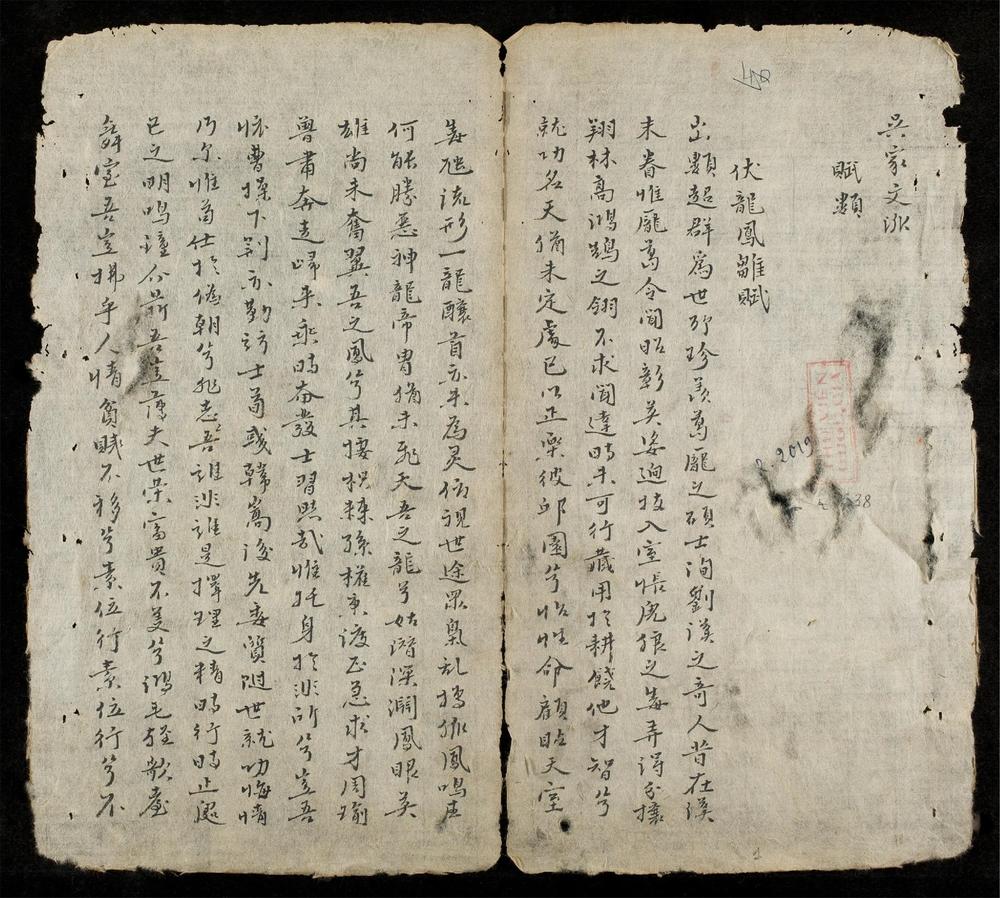 吴家文派
賦類
伏龍鳳雛賦
出類超群為世所珍羨葛龐之碩士洵劉漢之奇人昔在漢
末眷惟龐葛令聞昭彰英姿迥拔入室悵虎狼之毒弄得分攘
翔林高鴻鵠之翎不求聞達時未可行藏用於耕饒他才智兮
就功名天猶未定處已以正樂彼邱園兮怡性命顧此天室
毒
流形一龍釀首亦未為灵俯視世途眾梟乱搗
鳳鳴
何能勝惡神龍帝胄猶未飛天吾之龍兮姑潛深淵鳳眼英
雄尚未奮翼吾之鳳兮其棲枳棘孫權東渡正急求才周瑜
魯肅奔走歸来乘時奋發士習照哉惟托身於非所兮豈吾
懷曹操下荆亦勤訪士荀彧韓嵩後先委質隨世就功悔情
乃尔惟苟仕於偽朝兮非志吾誰非誰是擇理之精時行時止處
己之明鳴鐘分
吾豈薄夫世荣富貴不美兮鴻毛輕歌臺
舞室吾豈拂乎人情貧賤不移兮素位行素位行兮不
2019